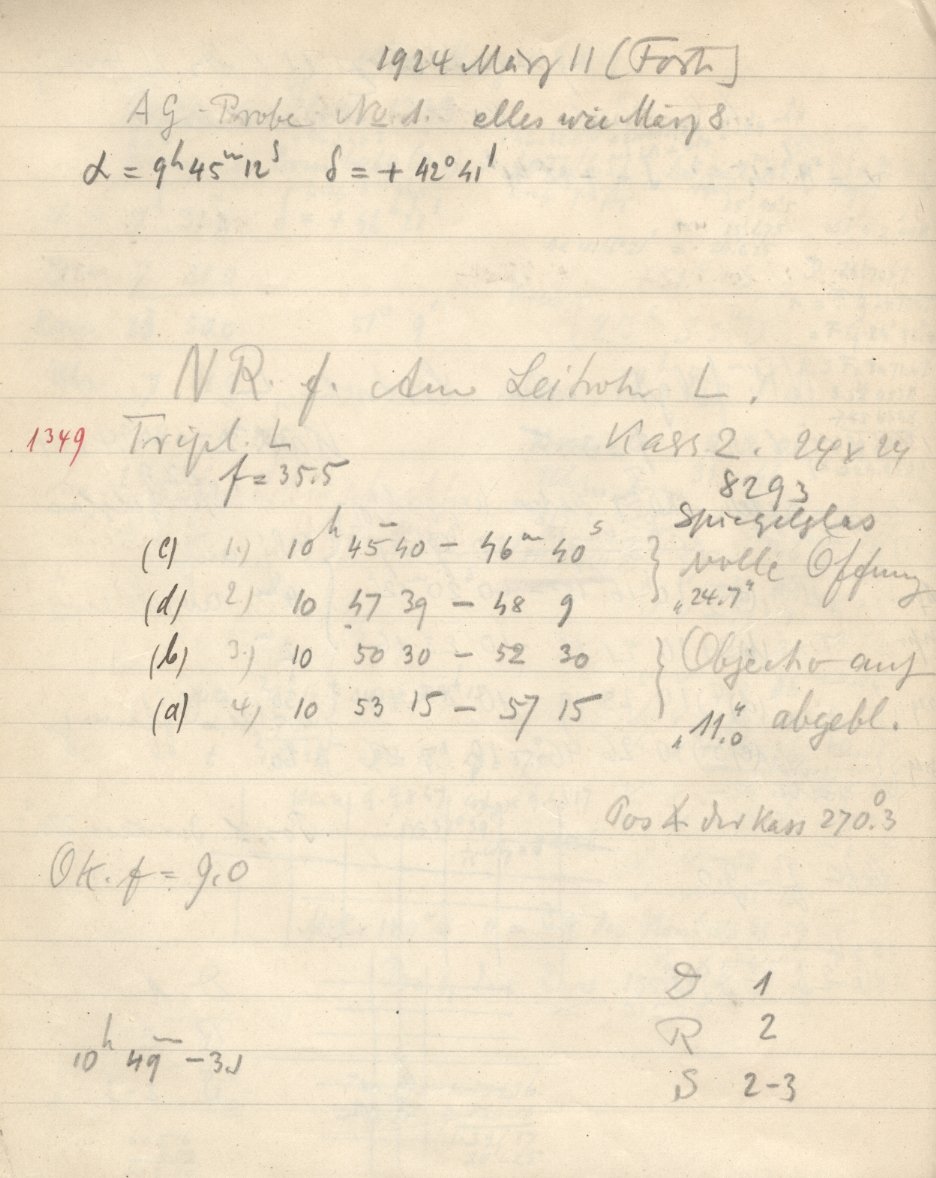 1924 März 11 [Forts.]
AG-Probe No 1. alles wie März 8
α = 9h 45m 12s δ = + 42° 41'
NR. f. Am Leitrohr L.
1349 Tripl. L Kass 2. 24x24
f = 35.5 8293
Spiegelglas
(c) 1.) 10h 45m 40 – 46m 40s } volle Öffnung
(d) 2.) 10 47 39 – 48 9 „24.7"
(b) 3.) 10 50 30 – 52 30 } Objectiv auf
(a) 4.) 10 53 15 – 57 15 „11.0" abgebl.
Pos ∡ der Kass 270.°3
Ok. f = 9.0
D 1
R 2
10h 49m –3.1
S 2-3